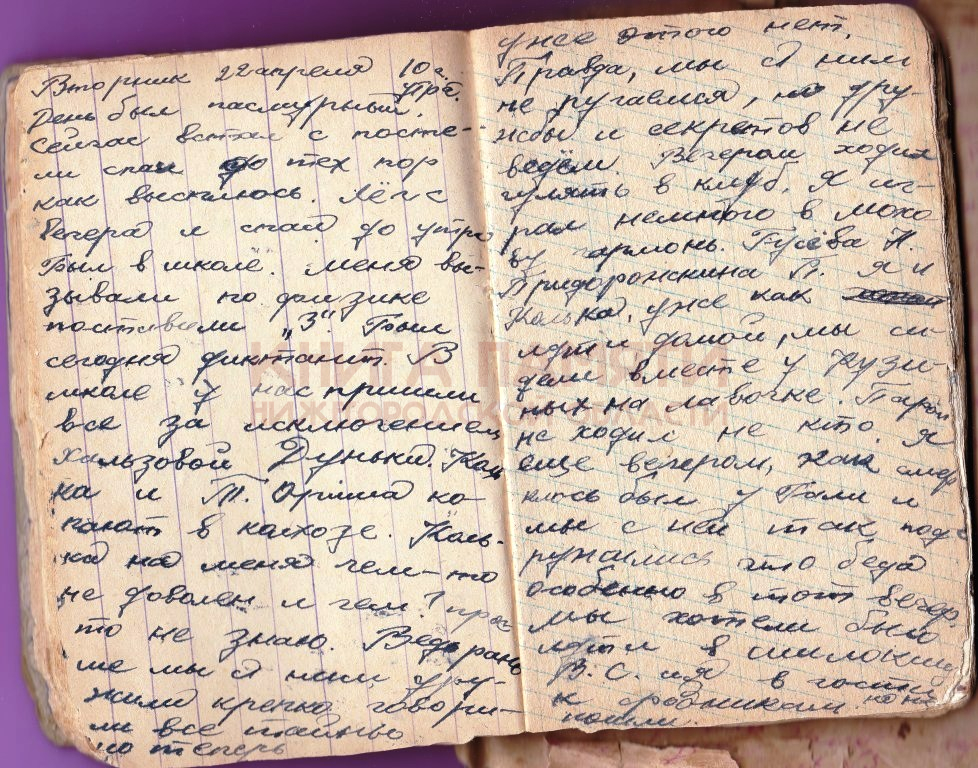 Вторник 22 апреля 10 ч. утра.
День был пасмурный.
Сейчас встал с посте-
ли спал до тех пор
как выспилось. Лёг с
вечера и спал до утра
Был в школе. Меня вы-
зывали по физике
поставили „3". Был
сегодня диктант. В
школе у нас пришли
все за исключением
хальзовой Дуньки.
ка и Т. Ориша ко-
пают в колхозе. Коль-
ка на меня чем-то
не доволен и чем? прос
то не знаю. Ведь рань
ше мы с ним дру-
жили крепко говори-
ли все тайны
но теперь
у нее этого нет.
Правда, мы с ним
не ругаемся, но дру-
жбы и секретов не
ведём. Вечером ходил
гулять в клуб. Я иг-
рал немного в
ву гармонь. Гусева Н.
Придорожкина П. я и
Колька, уже как
идти домой, мы си-
дели вместе у Рузи-
ных на лавочке. Парой
не ходил не кто. Я
еще вечером, как смер
клось был у Гали и
мы с ней так подр
ружились что беда
особенно в тот вечер,
мы хотели было
идти в
В. С. в гости
к родникам но не
пошли.
КНИГА ПАМЯТИ
НИЖЕГОРОДСКОЙ ОБЛАСТИ